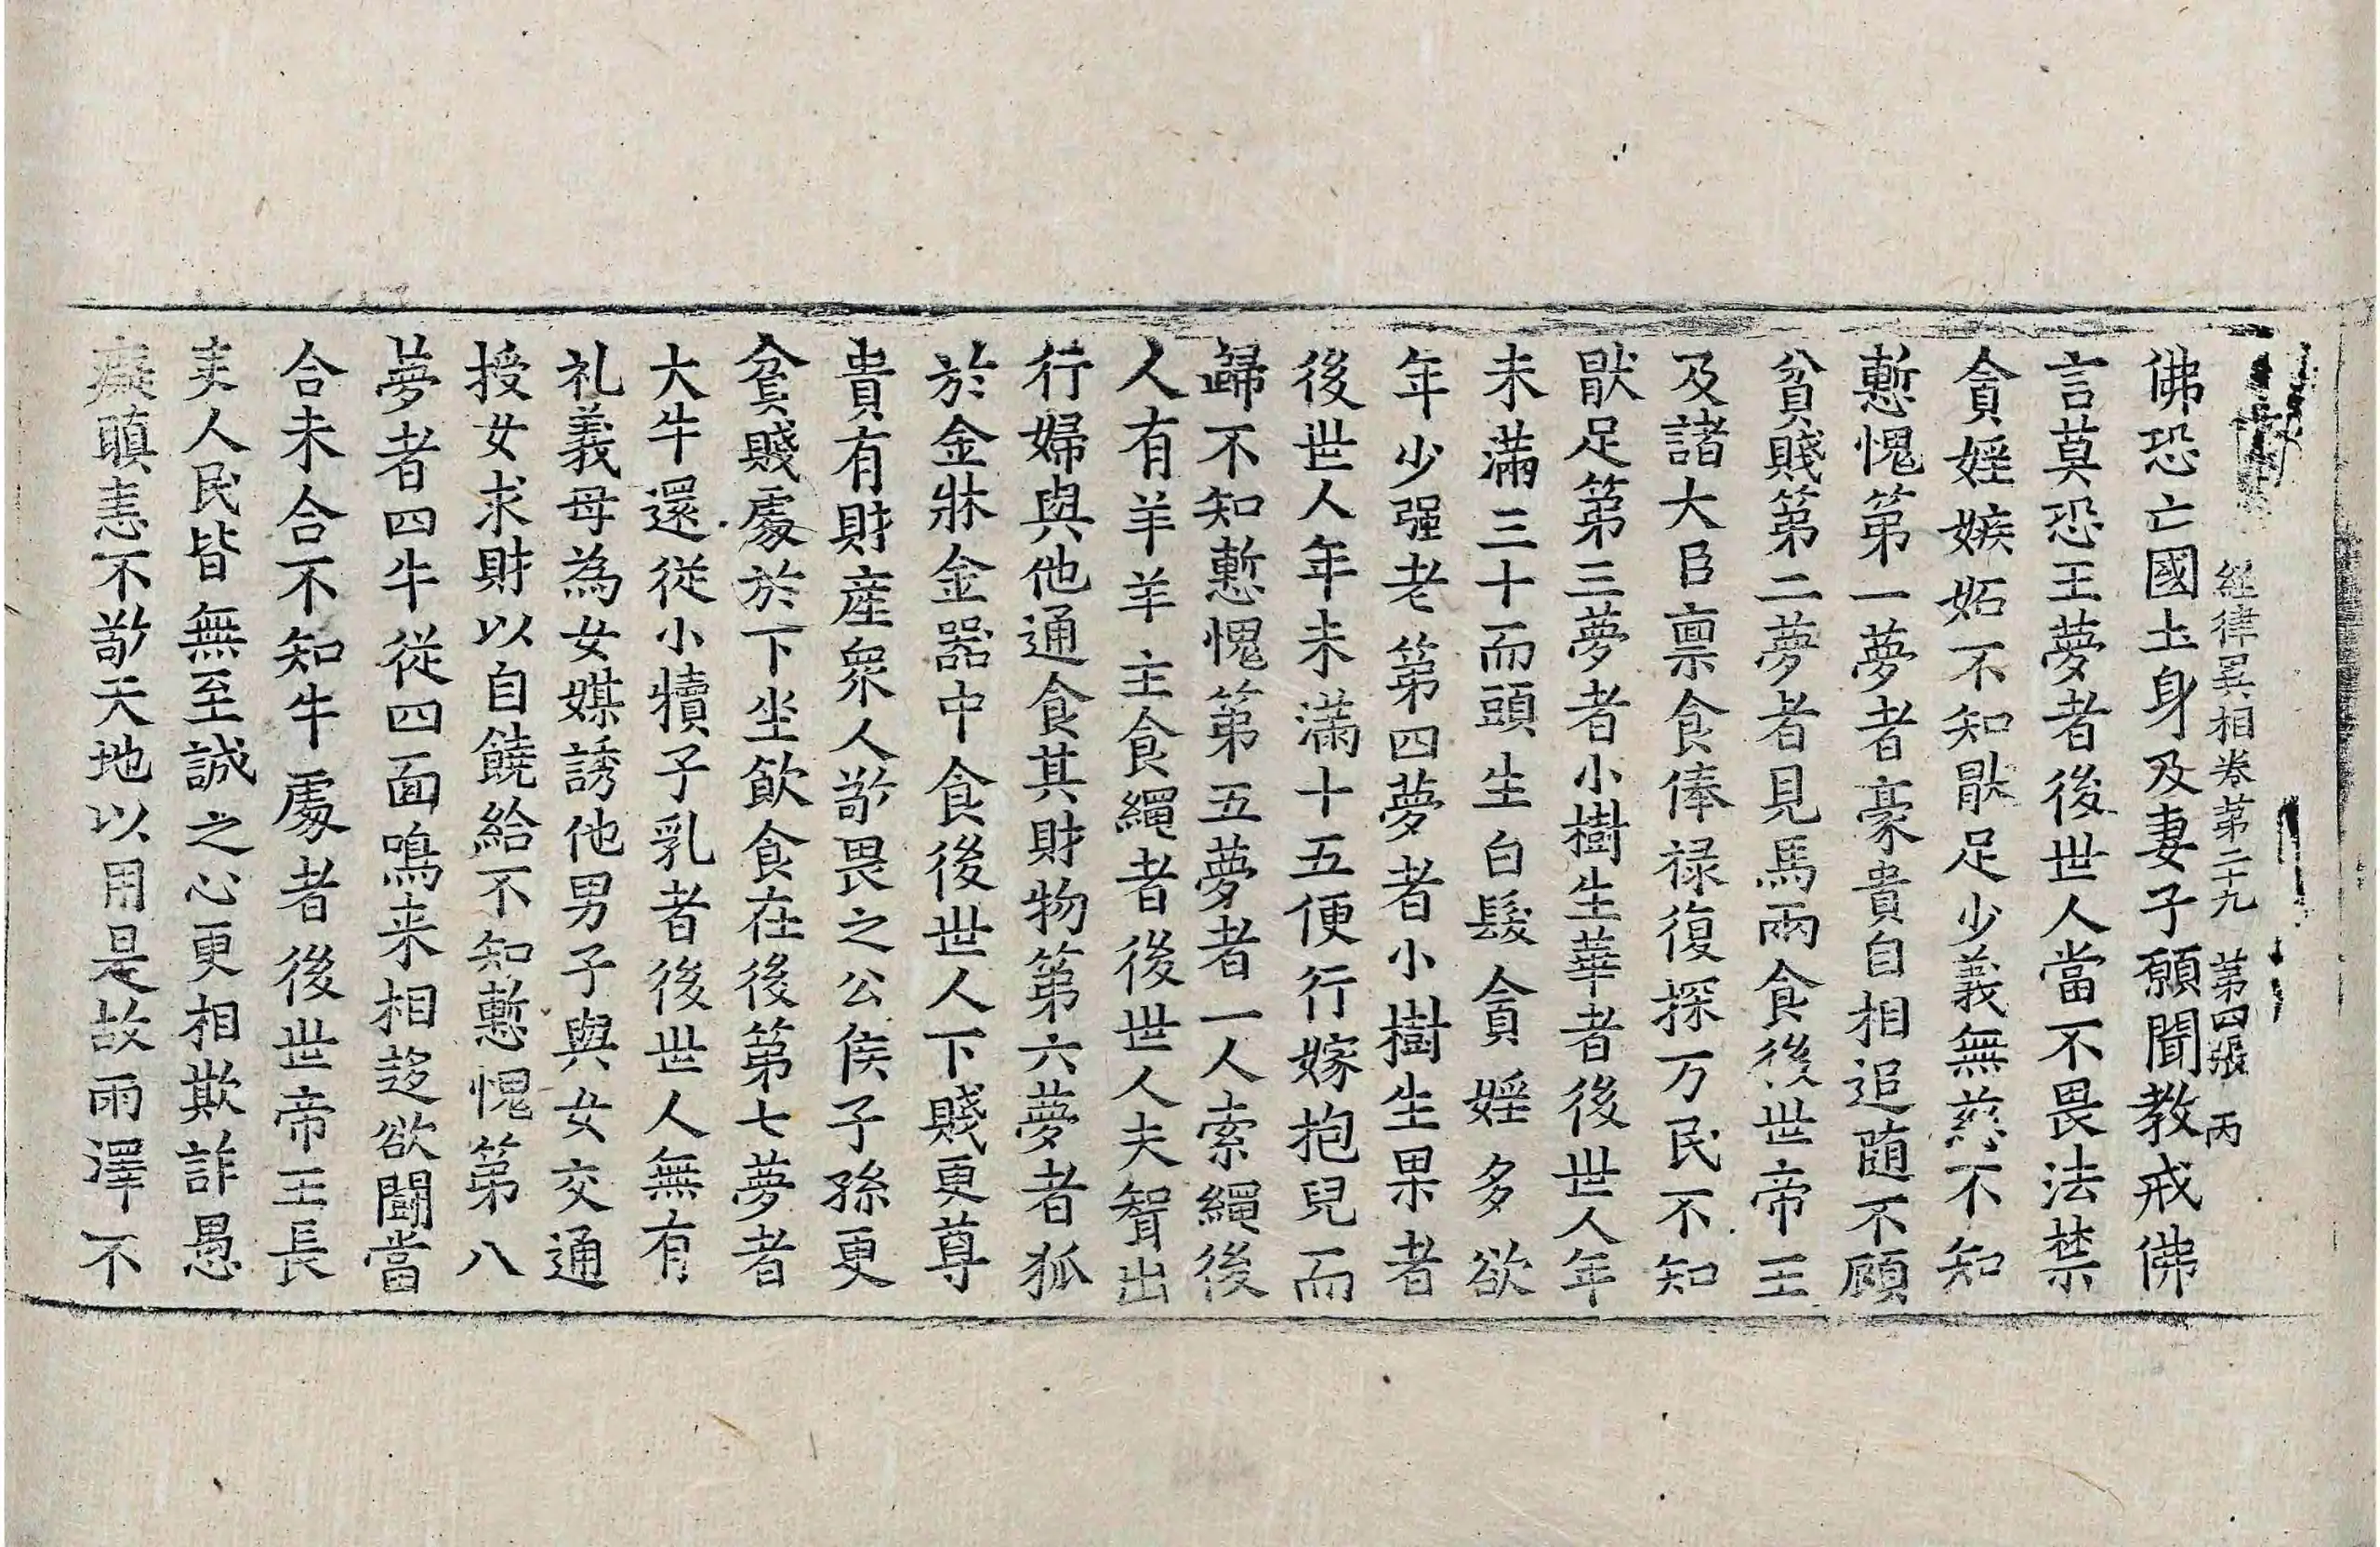 經律異相卷第二十九 第四張 丙
佛恐亡國土身及妻子願聞教戒佛
言莫恐王夢者後世人當不畏法禁
貪婬嫉妬不知猒足少義無慈不知
慙愧第一夢者豪貴自相追随不顧
貧賤第二夢者見馬兩食後世帝王
及諸大臣禀食俸禄復採万民不知
猒足第三夢者小樹生華者後世人年
未滿三十而頭生白髮貪婬多欲
年少强老第四夢者小樹生果者
後世人年未滿十五便行嫁抱兒而
歸不知慙愧第五夢者一人索繩後
人有羊羊主食繩者後世人夫聟出
行婦與他通食其財物第六夢者狐
於金牀金器中食後世人下賤更尊
貴有財産衆人敬畏之公侯子孫更
貧賤處於下坐飲食在後第七夢者
大牛還從小犢子乳者後世人無有
礼義母為女媒誘他男子與女交通
授女求財以自饒給不知慙愧第八
夢者四牛從四面鳴来相趍欲鬪當
合未合不知牛處者後世帝王長
吏人民皆無至誠之心更相欺詐愚
癡瞋恚不敬天地以用是故雨澤不